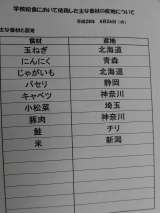 学校給食において使用した主な食材の産地について
平成28年 8月24日(水)
主な食材と産地
食材 産地
玉ねぎ 北海道
にんにく 青森
じゃがいも 北海道
パセリ 静岡
キャベツ 神奈川
小松菜 埼玉
豚肉 神奈川
鮭 チリ
米 新潟